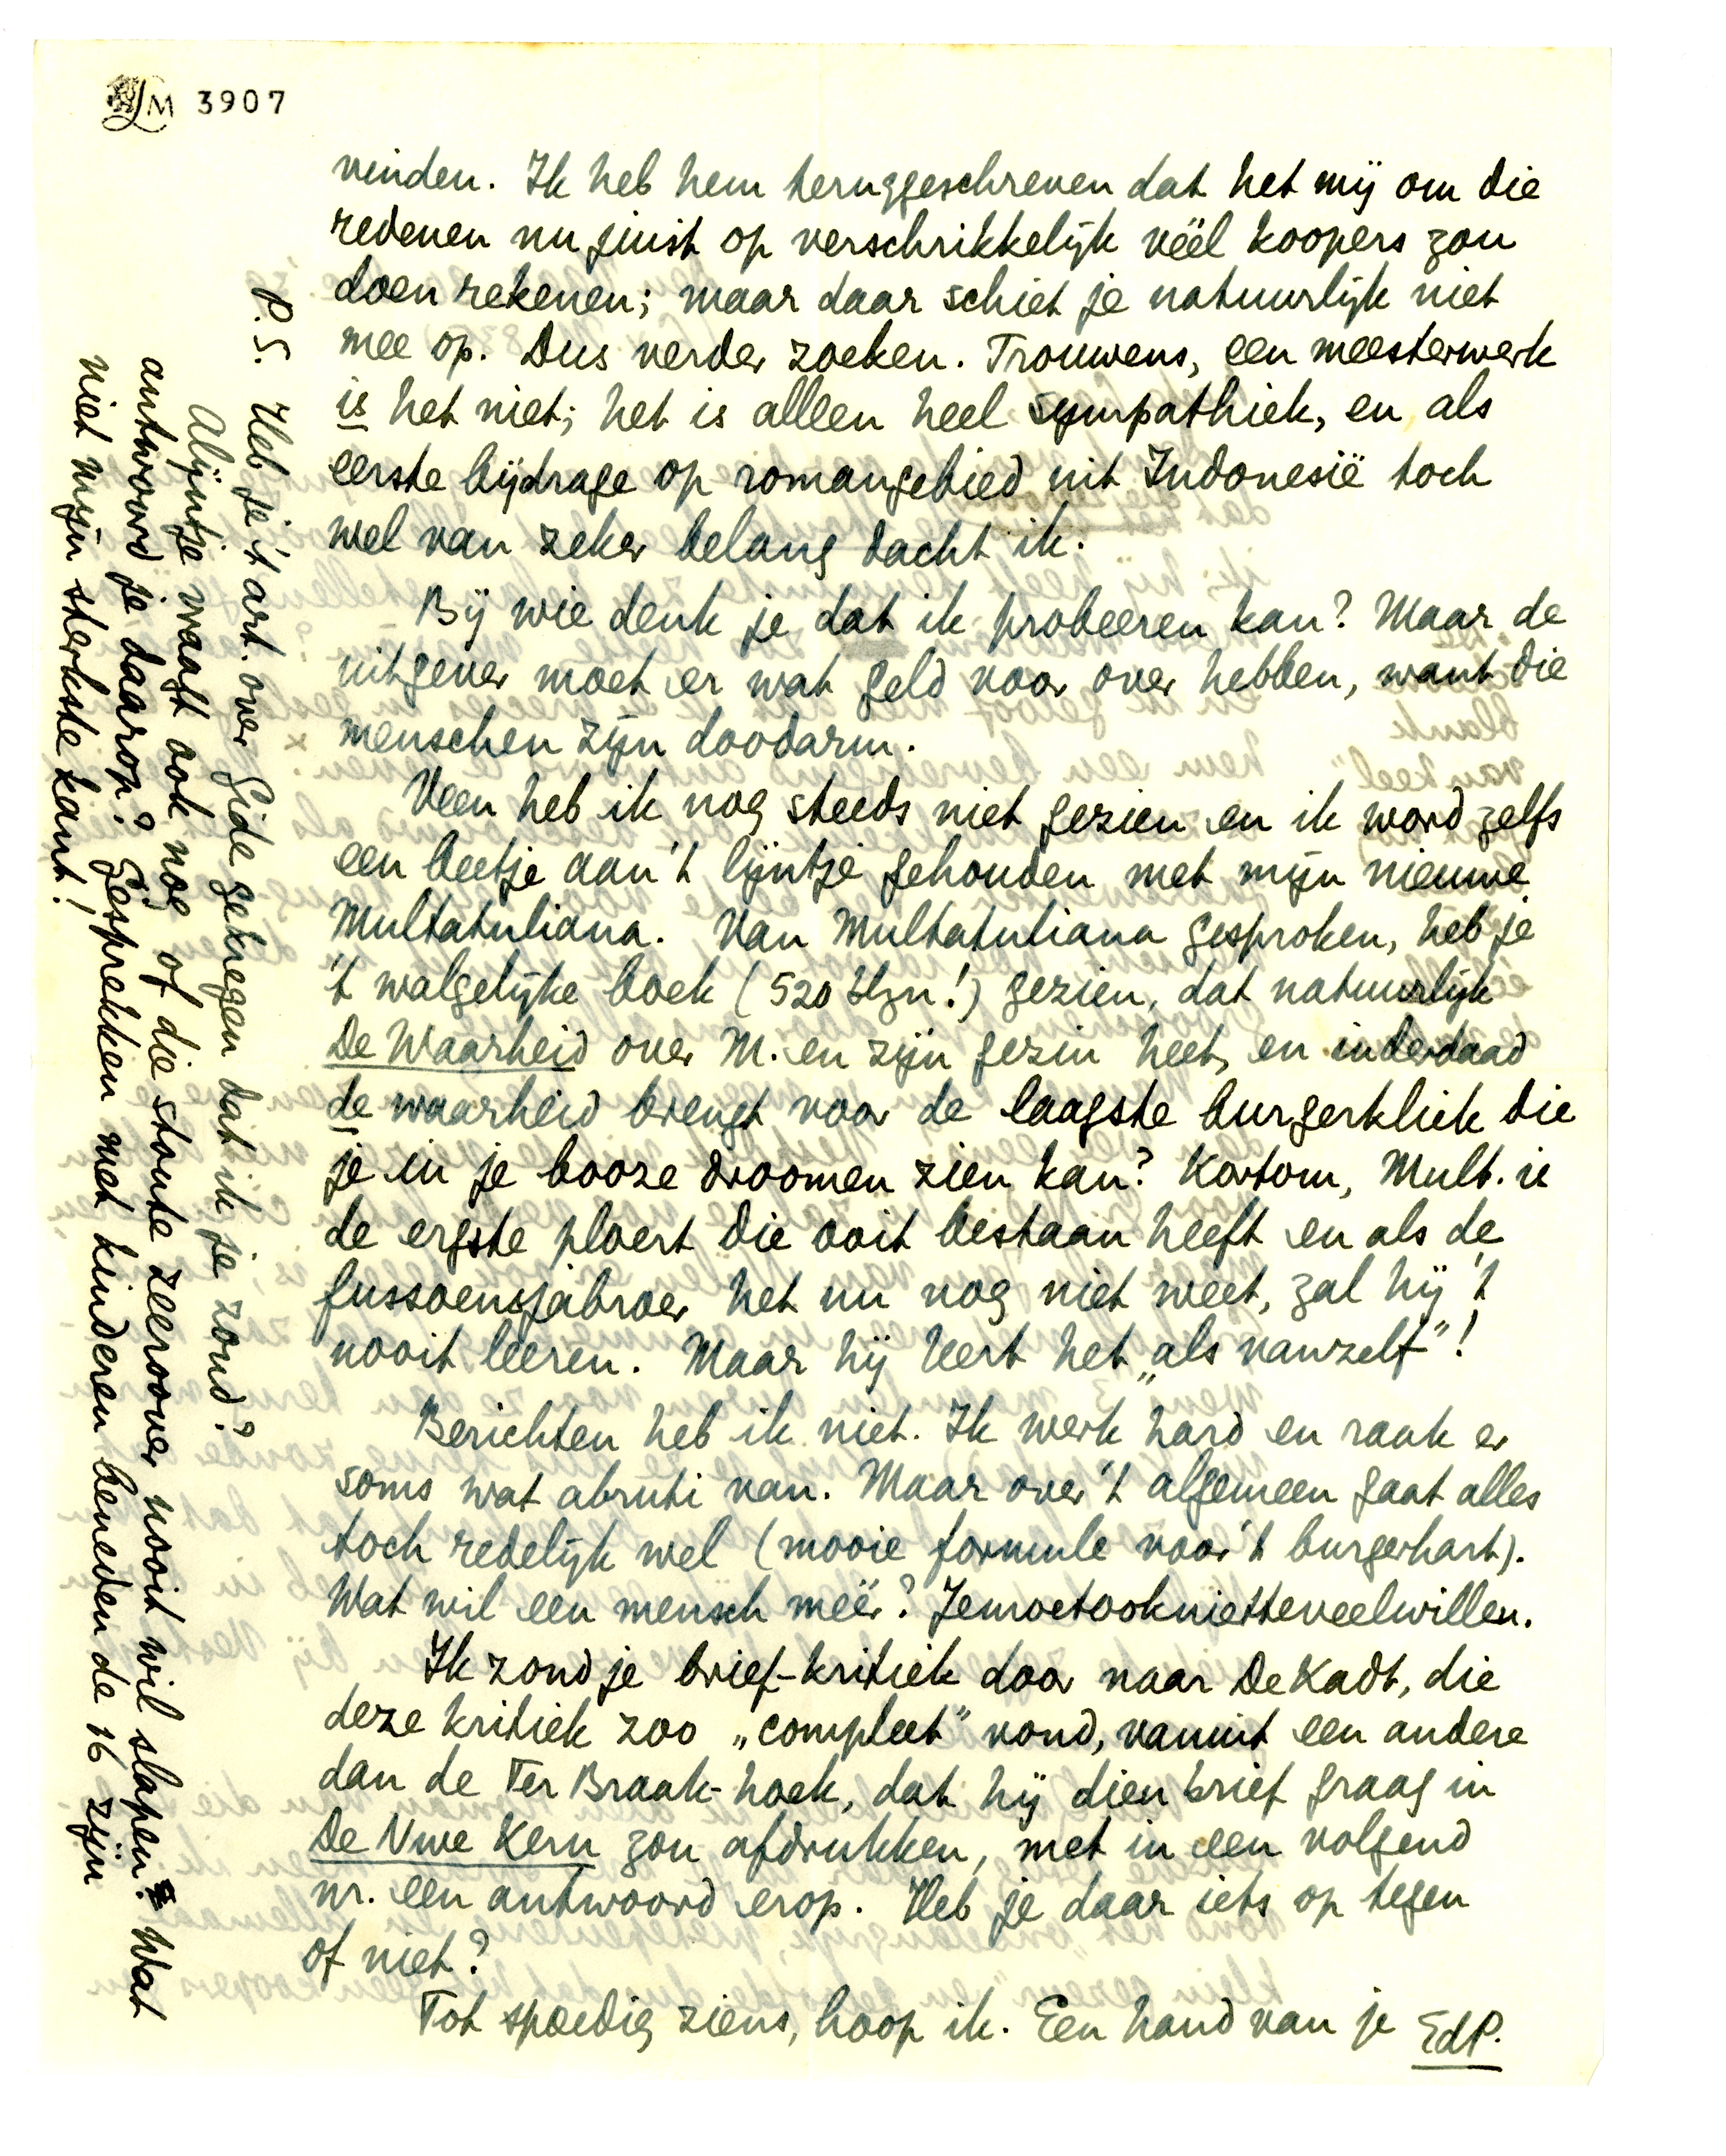 LM 3907
vinden. Ik heb hem teruggeschreven dat het mij om die
redenen nu juist op verschrikkelijk véél koopers zou
doen rekenen; maar daar schiet je natuurlijk niet
mee op. Dus verder zoeken. Trouwens, een meesterwerk
is het niet; het is alleen heel sympathiek, en als
eerste bijdrage op romangebied uit Indonesië toch
wel van zeker belang dacht ik.
Bij wie denk je dat ik probeeren kan? Maar de
uitgever moet er wat geld voor over hebben, want die
menschen zijn doodarm.
Veen heb ik nog steeds niet gezien en ik word zelfs
een beetje aan 't lijntje gehouden met mijn nieuwe
Multatuliana. Van Multatuliana gesproken, heb je
't walgelijke boek (520 blzn!) gezien, dat natuurlijk
De Waarheid over M. en zijn gezin heet, en inderdaad
de waarheid brengt voor de laagste burgerkliek die
je in je booze droomen zien kan? Kortom, Mult. is
de ergste ploert die ooit bestaan heeft en als de
fussoensjabroer het nu nog niet weet, zal hij 't
nooit leeren. Maar hij leert het „als vanzelf"!
Berichten heb ik niet. Ik werk hard en raak er
soms wat abruti van. Maar over 't algemeen gaat alles
toch redelijk wel (mooie formule voor 't burgerhart).
Wat wil een mensch méér? Jemoetooknietteveelwillen.
Ik zond je brief-kritiek door naar De Kadt, die
deze kritiek zoo „compleet" vond, vanuit een andere
dan de Ter Braak-hoek, dat hij dien brief graag in
De Nwe Kern zou afdrukken, met in een volgend
nr. een antwoord erop. Heb je daar iets op tegen
of niet?
Tot spoedig ziens, hoop ik. Een hand van je EdP.
P.S. Heb je 't art. over Gide gekregen dat ik je zond?
Alijntje vraagt ook nog of die stoute zeeroover nooit wil slapen. Wat
antwoord je daarop? Gesprekken met kinderen beneden de 16 zijn
niet mijn sterkste kant!